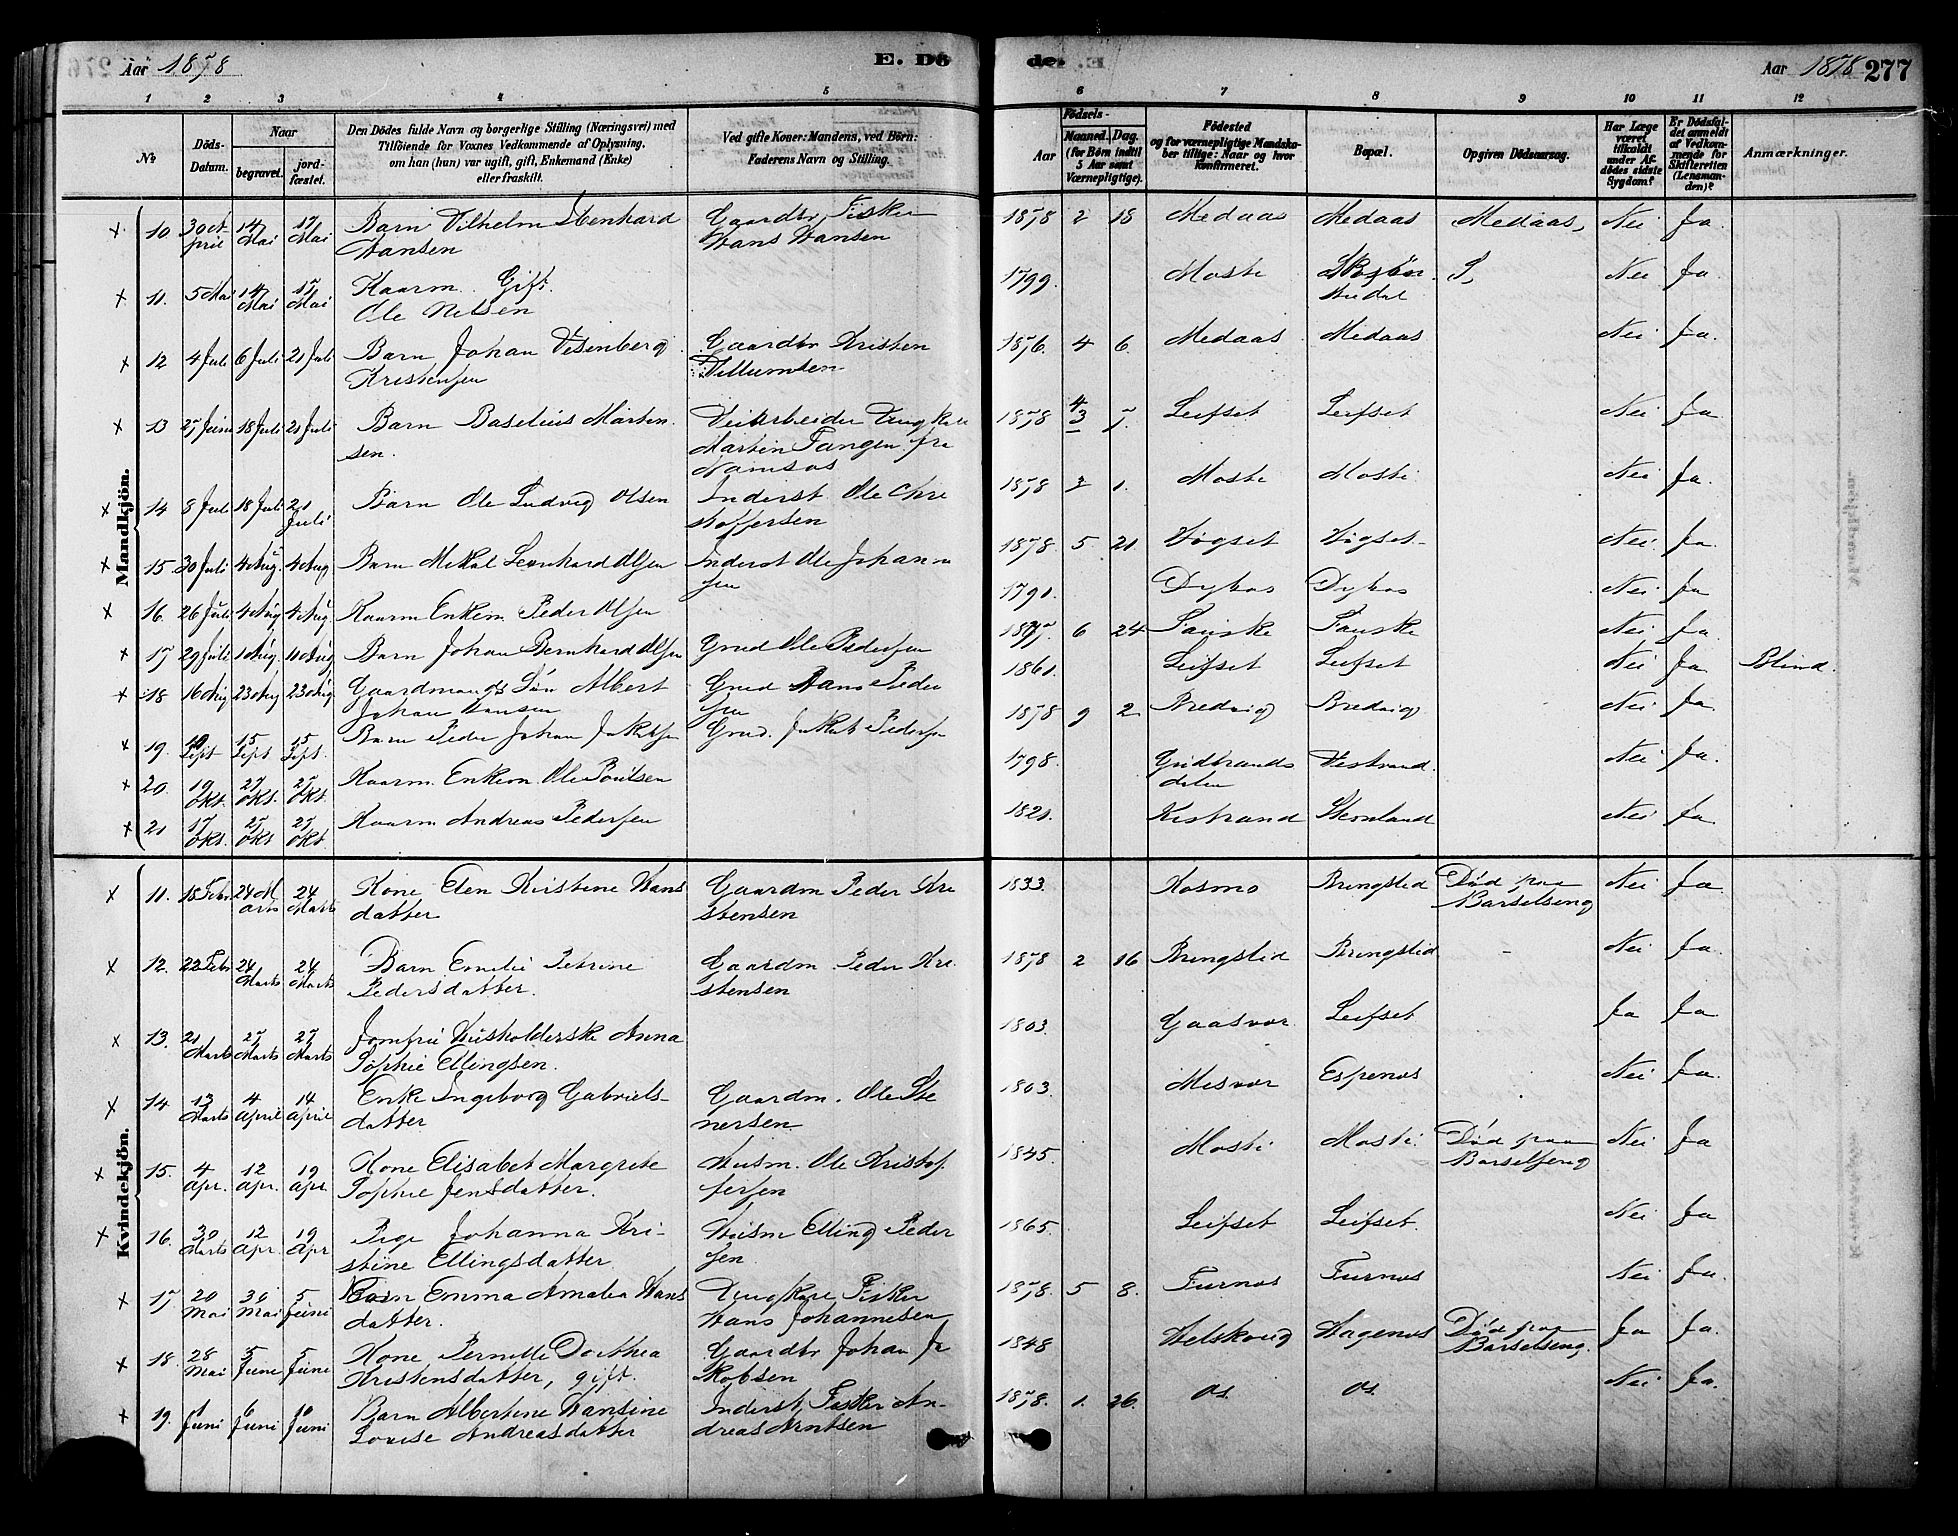 Aar 1878
E. Dö
de.
Aar 1878
277
1 2 3 4 5 6 7 8 9 10 11 12
No
Döds-Datum.
Naar
begravet.
jord-fæstet.
Den Dödes fulde Navn og borgerlige Stilling (Næringsvei) med
Tilföiende for Voxnes Vedkommende af Oplysning,
om han (hun) var ugift, gift, Enkemand (Enke)
eller fraskilt.
Ved gifte Koner: Mandens, ved Börn:
Faderens Navn og Stilling.
Födsels-
Aar
Maaned. Dag.
(for Börn indtil
5 Aar samt
Værnepligtige).
Födested
og for værnepligtige Mandska-
ber tillige: Naar og hvor
Konfirmeret.
Bopæl.
Opgiven Dödsaarsag.
Har Læge
været
tilkaldt
under Af-
dödes sidste
Sygdom?
Er Dödsfal-
det anmeldt
af Vedkom-
mende for
Skifteretten
(Lensman-
den)?
Anmærkninger.
Mandkjön.
10. 30 April 14 Mai 17 Mai Barn Vilhelm Hansen Gaardbr, Fisker Hans Hansen 1878 2 18 Medaas Medaas Medaas, Nei Ja.
11. 5 Mai 14 Mai 17 Mai Kaarm. Gift. Ole Nelsen 1799. Moste Nei Ja
12 4 Juli 6 Juli 21 Juli Barn Johan Kristensen Gaardbr Kristen Villumsen 1876. 4 6. Medaas Medaas Nei Ja.
13 27 Juni 18 Juli 21 Juli Barn Baselius Martinsen. Veiarbeider Martin Tangen fra Namsos 1878 Leifset Leifset Nei Ja
14 8 Juli 18 Juli 21 Juli Barn Ole Ludvig Olsen Inderst Ole Christoffersen 1878 3 1. Moste Moste Nei Ja.
15 30 Juli 4 Aug. 4 Aug Barn Mikal Leonhard Olsen Inderst Ole Johannsen 1878. 5 21. Vogset Vogset Nei Ja.
16. 26 Juli 4 Aug. 4 Aug. Kaarm Enkem Peder Olsen 1791. Dybos Dybos Nei Ja
17 29 Juli 11 Aug. 11 Aug Barn Johan Bernhard Olsen Grud Ole Pedersen 1877. 6 24 Fauske Fauske Nei Ja.
18 16 Aug 23 Aug 23 Aug Gaardmands Søn Albert Johan Hansen Grud Hans Pedersen 1861. Leifset Leifset Nei Ja Blind.
19. 10 Sept 15 Sept 15 Sept. Barn Peder Johan Jakobsen Grud. Jakob Pedersen 1878 9 2. Bredvig Bredvig Nei Ja.
20. 19 Okt. 27 Okt. 27 Okt. Kaarm. Enkem. Ole Poulsen 1798. Gudbrandsdalen Vestvand. Nei Ja.
21 17 Okt. 27 Okt 27 Okt. Kaarm Andreas Pedersen 1821. Kistrand Stenland Nei Ja.
Kvindekjön.
11. 18 Febr 24 Marts 24 Marts Kone Elen Kirstine Hansdatter Gaardm Peder Kristensen 1833. Kosmo Bringslid Død paa Barselseng Nei Ja
12. 22 Febr 24 Marts 24 Marts Barn Emelie Petrine Pedersdatter. Gaardm. Peder Kristensen 1878 2 16 Bringslid Bringslid - Nei Ja.
13. 21 Marts 27 Marts 27 Marts Jomfru Husholderske Anna Sophie Ellingsen. 1803. Gaasvær. Leifset Ja Ja
14 13 Marts 4 April 14 April Enke Ingeborg Gabrielsdatter Gaardm. Ole Stenersen. 1803. Misvær Espenes Nei Ja.
15. 4 Apr. 12 Apr. 19 Apr Kone Elisabet Margrete Sophie Jensdatter. Husm. Ole Kristoffersen 1845. Moste Moste Død paa Barselseng Nei Ja
16. 30 Marts 12 Apr. 19 Apr Pige Johanna Kristine Ellingsdatter. Husm Elling Pedersen 1865. Leifset Leifset. Nei Ja
17 20 Mai 30 Mai 5 Juni Barn Emma Amalia Hansdatter. Ungkarl Fisker Hans Johannesen 1878. 5 8. Furnes Furnes Nei Ja.
18. 28 Mai 5 Juni 5 Juni Kone Pernille Dorthea Kristensdatter, gift. Gaardbr Johan Jakobsen 1848 Hagenes Død paa Barselseng. Ja Ja.
19. 1 Juni 6 Juni 10 Juni Barn Albertine Hansine Lovise Andreasdatter Inderst, Fisker Andreas Arntsen 1878. 1. 26. Os. Os. Nei Ja.